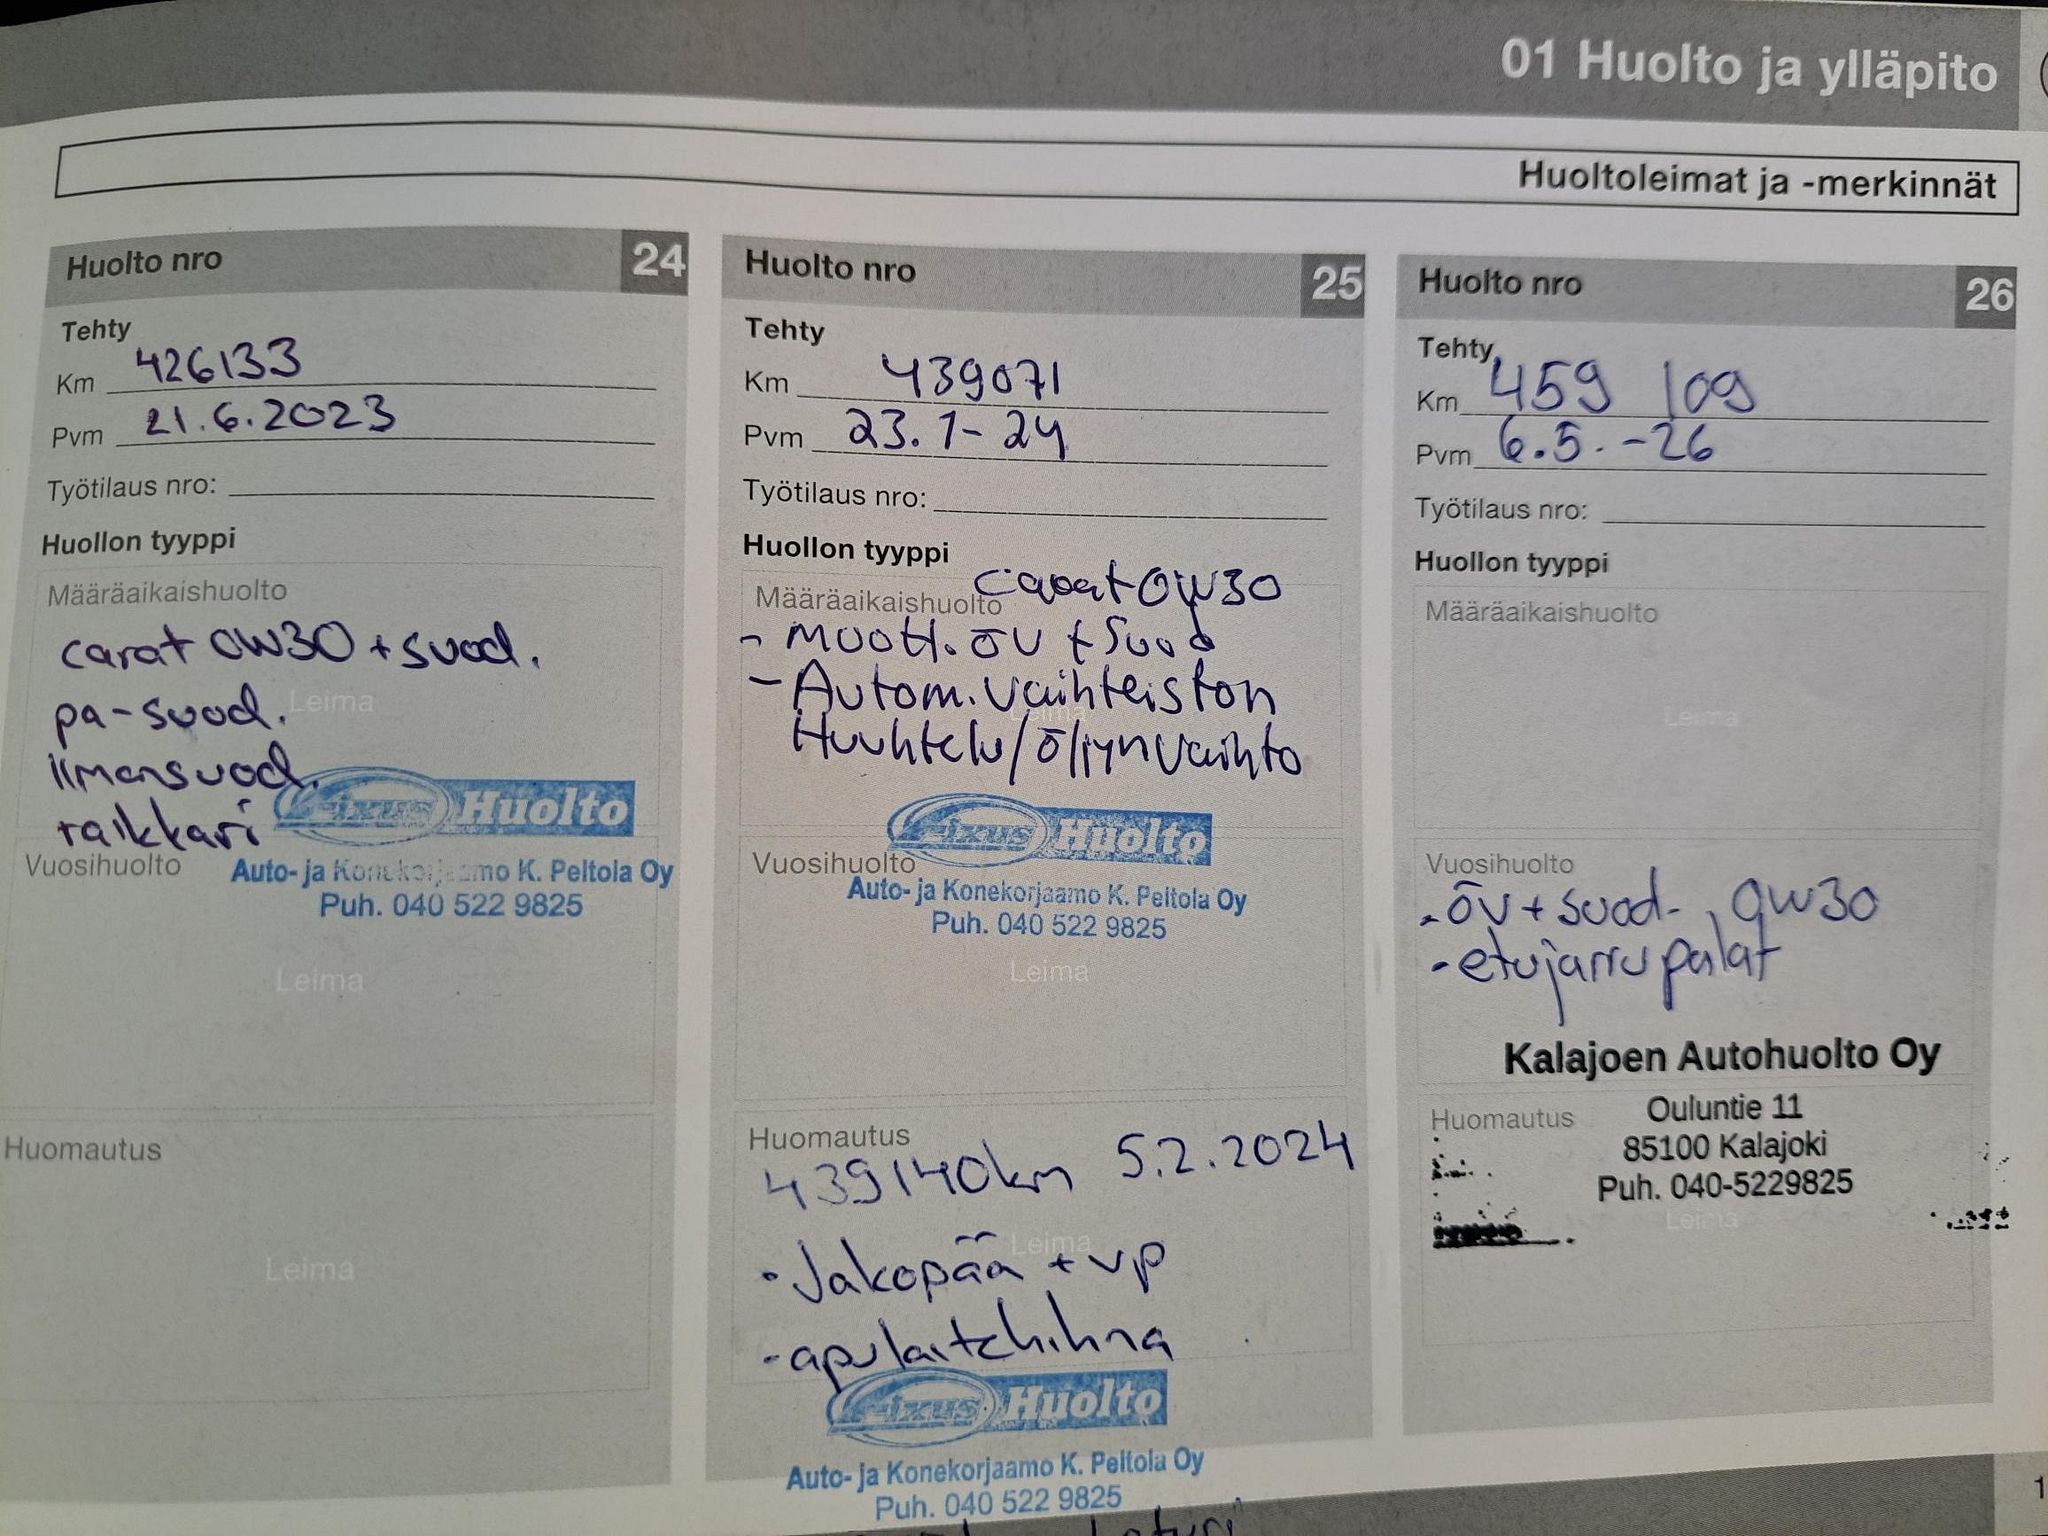 01 Huolto ja ylläpito
Huoltoleimat ja -merkinnät
Huolto nro 24
Tehty
Km 426133
Pvm 21.6.2023
Työtilaus nro:
Huollon tyyppi
Määräaikaishuolto
carat 0W30 + suod.
Leima
pa-suod.
ilmansuod.
raikkari
Fixus Huolto
Vuosihuolto
Auto- ja Konekorjaamo K. Peltola Oy
Puh. 040 522 9825
Leima
Huomautus
Leima
Huolto nro 25
Tehty
Km 439071
Pvm 23.1-24
Työtilaus nro:
Huollon tyyppi
carat 0W30
Määräaikaishuolto
- Moott. öv + suod
- Autom. vaihteiston
Leima
Huuhtelu/öljynvaihto
Fixus Huolto
Vuosihuolto
Auto- ja Konekorjaamo K. Peltola Oy
Puh. 040 522 9825
Leima
Huomautus
439140km 5.2.2024
Leima
- Jakopää + vp
- apulaitehihna
Fixus Huolto
Auto- ja Konekorjaamo K. Peltola Oy
Puh. 040 522 9825
Huolto nro 26
Tehty
Km 459 109
Pvm 6.5.-26
Työtilaus nro:
Huollon tyyppi
Määräaikaishuolto
Leima
Vuosihuolto
- öv + suod-, 0W30
- etujarrupalat
Kalajoen Autohuolto Oy
Huomautus
Ouluntie 11
85100 Kalajoki
Puh. 040-5229825
Leima
1